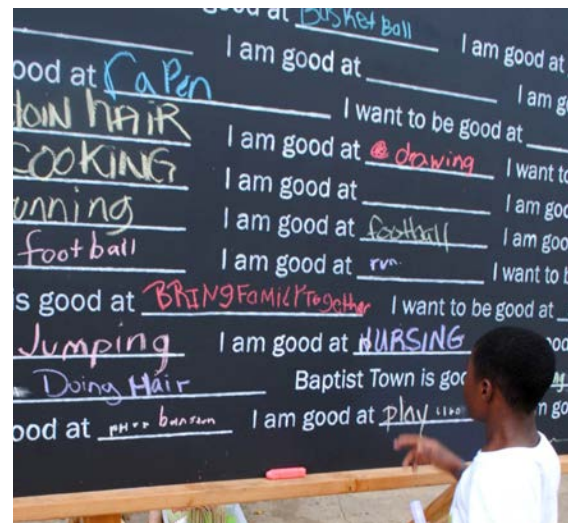 good at Basketball I am good at
I am good at
ood at Rapen I am g
DOIN HAIR I want to be good at
COOKING I am good at drawing I want to
unning I am good at I am goo
football I am good at football I am goo
I am good at run I want to b
s good at BRING FAMILY Together I want to be good at
Jumping I am good at NURSING ood
Doing Hair Baptist Town is goo
ood at I am good at play n go